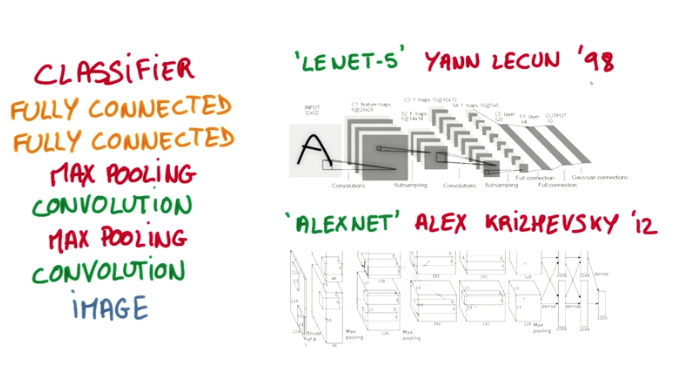 CLASSIFIER
FULLY CONNECTED
FULLY CONNECTED
MAX POOLING
CONVOLUTION
MAX POOLING
CONVOLUTION
IMAGE
'LENET-5' YANN LECUN '98
INPUT
32x32
C1: feature maps
6@28x28
S2: f. maps
6@14x14
C3: f. maps 16@10x10
S4: f. maps 16@5x5
C5: layer
120
F6: layer
84
OUTPUT
10
A
Convolutions
Subsampling
Convolutions
Subsampling
Full connection
Full connection
Gaussian connections
'ALEXNET' ALEX KRIZHEVSKY '12
Stride
of 4
Max
pooling
128
Max
pooling
192
192
128
Max
pooling
2048
2048
dense
dense
dense